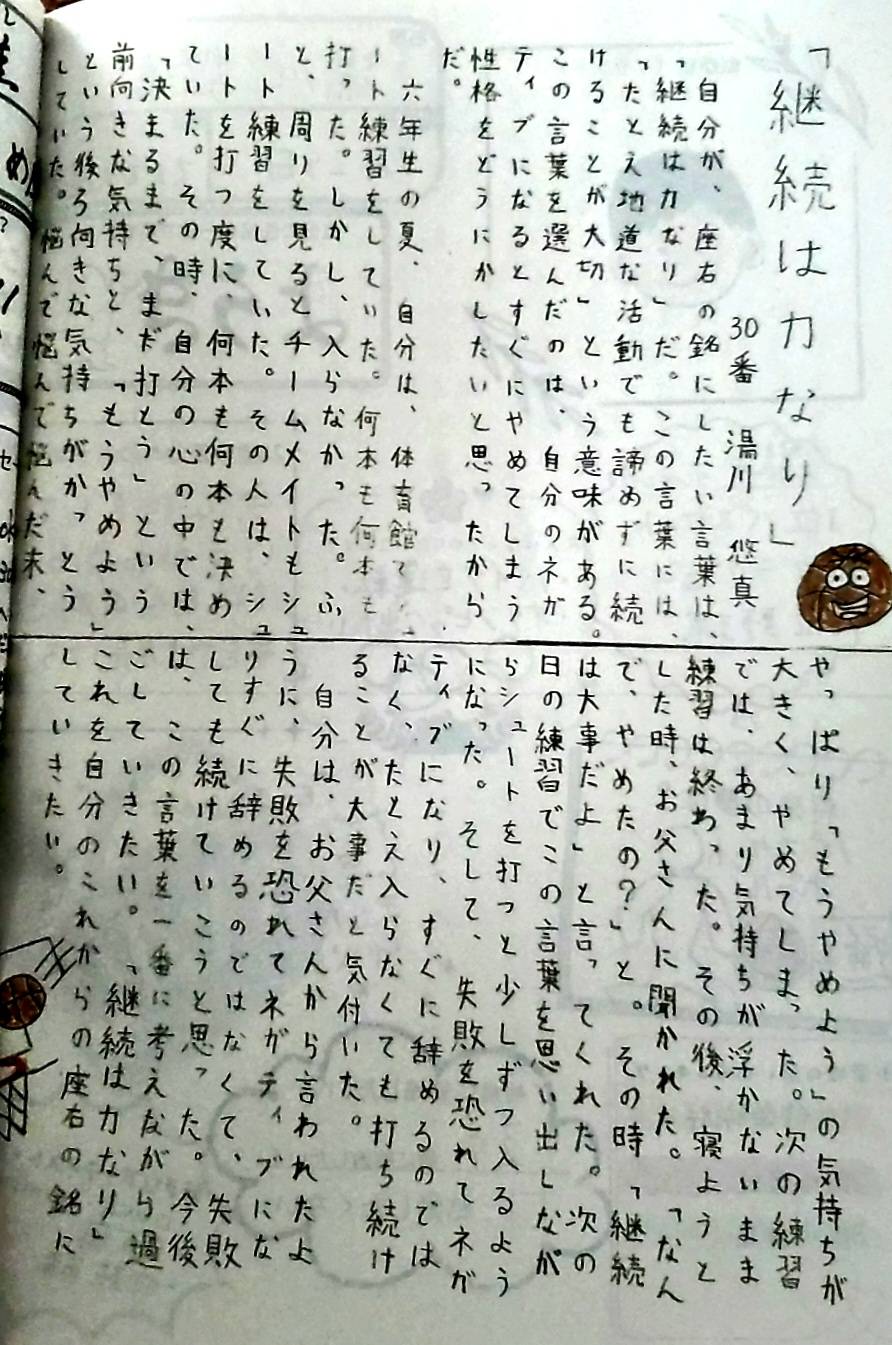 「継続は力なり」
30番 湯川 悠真
自分が、座右の銘にしたい言葉は、
「継続は力なり」だ。この言葉には、
「たとえ地道な活動でも諦めずに続
けることが大切」という意味がある。
この言葉を選んだのは、自分のネガ
ティブになるとすぐにやめてしまう
性格をどうにかしたいと思ったから
だ。
六年生の夏、自分は、体育館で
ート練習をしていた。何本も何本も
打った。しかし、入らなかった。ふ
と、周りを見るとチームメイトもシュ
ート練習をしていた。その人は、シュ
ートを打つ度に、何本も何本も決め
ていた。その時、自分の心の中では、
「決まるまで、まだ打とう」という
前向きな気持ちと、「もうやめよう」
という後ろ向きな気持ちがかっとう
していた。悩んで悩んで悩んだ末、
やっぱり「もうやめよう」の気持ちが
大きく、やめてしまった。次の練習
では、あまり気持ちが浮かないまま
練習は終わった。その後、寝ようと
した時、お父さんに聞かれた。「なん
で、やめたの?」と。その時「継続
は大事だよ」と言ってくれた。次の
日の練習でこの言葉を思い出しなが
らシュートを打つと少しずつ入るよう
になった。そして、失敗を恐れてネガ
ティブになり、すぐに辞めるのでは
なく、たとえ入らなくても打ち続け
ることが大事だと気付いた。
自分は、お父さんから言われたよ
うに、失敗を恐れてネガティブにな
りすぐに辞めるのではなくて、失敗
しても続けていこうと思った。今後
は、この言葉を一番に考えながら過
ごしていきたい。「継続は力なり」
これを自分のこれからの座右の銘に
していきたい。